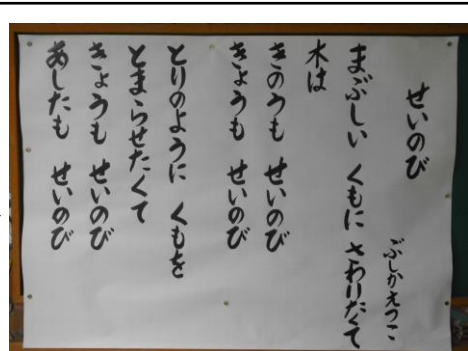 せいのび
ぶしかえつこ
まぶしい くもに さわりたくて
木は
きのうも せいのび
きょうも せいのび
とりのように くもを
とまらせたくて
きょうも せいのび
あしたも せいのび